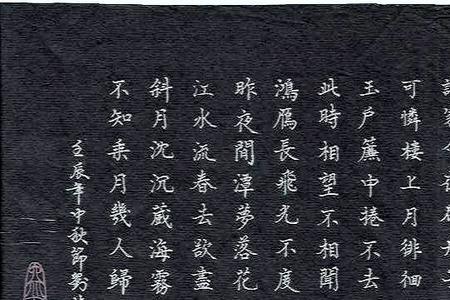 可憐樓上月徘徊
玉戶簾中捲不去
此時相望不相聞
鴻雁長飛光不度
昨夜間潭夢落花
江水流春去欲盡
斜月沈沉藏海霧
不知乘月幾人歸
壬辰年中秋節